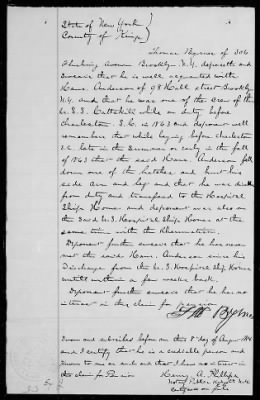 State of New York )
County of Kings )
Thomas Byrnes of 306
Flushing Avenue Brooklyn N.Y. deposeth and
swears that he is well acquainted with
Hans Anderson of 98 Hall street Brooklyn
N.Y. and that he was one of the crew of the
U.S.S. Cattskill while on duty before
Charleston S.C. in 1863 and deponent well
remembers that while laying before Charleston
S.C. late in the Summer or early in the fall
of 1863 that the said Hans Anderson fell
down one of the hatches and hurt his
side arm and leg and that he was
from duty and transferred to the Hospital
Ship Home and deponent was also on
the said U.S. Hospital Ship Home at the
same time with the Rheumatism.
Deponent further swears that he has never
met the said Hans Anderson since his
Discharge from the U.S. Hospital Ship Home
untill within a few weeks back.
Deponent further swears that he has no
interest in this claim for pension
Byrnes
Sworn and subscribed before me this 8th day of August
and I certify that he is a credible person and
known to me as such and that I have no interest in
this claim for Pension
Henry A. Phillips
Notary Public
Certificate on file